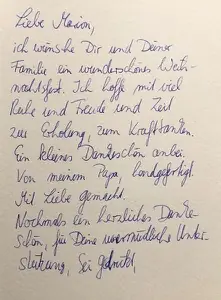 Liebe Marion,
ich wünsche Dir und Deiner
Familie ein wunderschönes Weih-
nachtsfest. Ich hoffe mit viel
Ruhe und Freude und Zeit
zur Erholung, zum Krafttanken.
Ein kleines Dankeschön anbei.
Von meinem Papa, handgefertigt.
Mit Liebe gemacht.
Nochmals ein herzliches Danke-
schön, für Deine unermüdliche Unter-
stützung. Sei gedrückt,